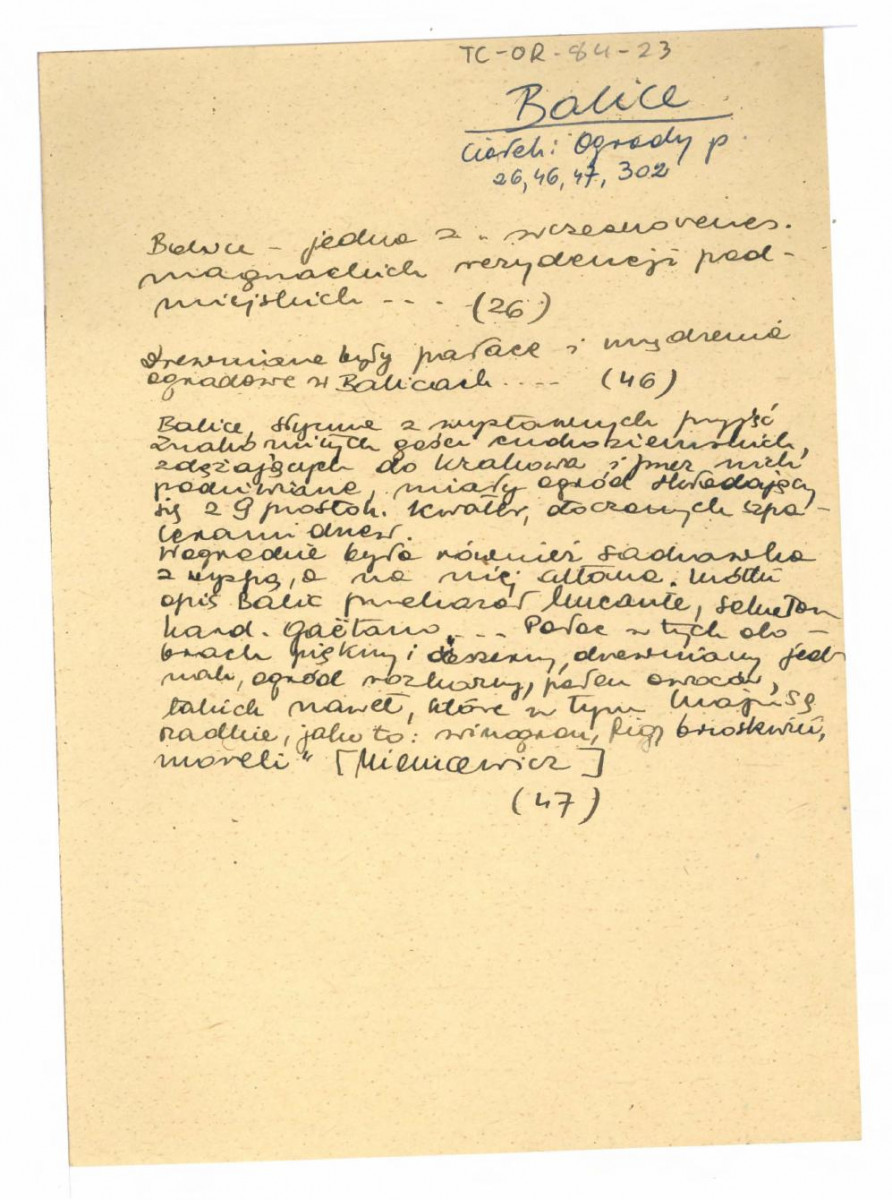 TC-OR-84-23
Balice
Ciołek: Ogrody p.
26, 46, 47, 302
Balice – jedna z „ wczesnorenes.
magnackich rezydencji pod-
miejskich --- . (26)
Drewniane były pałace i urządzenia
ogrodowe w Balicach .... (46)
Balice, słynne z wystawnych przyjęć
znakomitych gości cudzoziemskich,
zdążających do Krakowa i przez nich
podziwiane, miały ogród składający
się z 9 prostok. kwater, otoczonych szpa-
lerami drzew.
W ogrodzie była również sadzawka
z wyspą, a na niej altana. Krótki
opis Balic przekazał Mucante, sekretarz
kard. Gaëtano „... Pałac w tych do-
brach piękny i obszerny, drewniany jed-
nak, ogród rozkoszny, pełen owoców,
takich nawet, które w tym kraju są
rzadkie, jako to: winogron, fig, brzoskwiń,
moreli" [Niemcewicz]
(47)